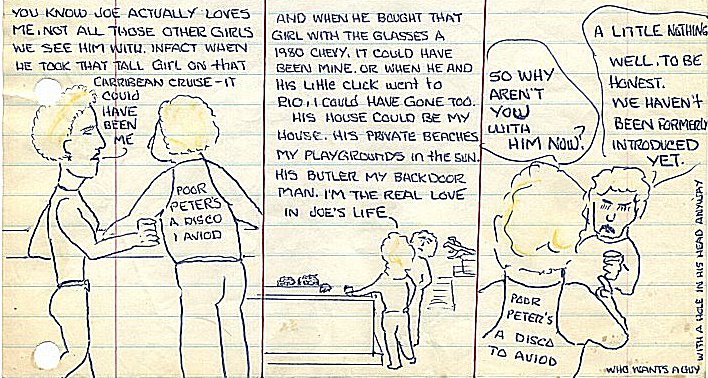 YOU KNOW JOE ACTUALLY LOVES
ME, NOT ALL THOSE OTHER GIRLS
WE SEE HIM WITH. INFACT WHEN
HE TOOK THAT TALL GIRL ON that
CARRIBEAN CRUISE-IT
COULD
HAVE
BEEN
ME
POOR
PETER'S
A DISCO
I AVIOD
AND WHEN HE BOUGHT THAT
GIRL WITH THE GLASSES A
1980 CHEVY, IT COULD HAVE
BEEN MINE. OR WHEN HE AND
HIS LITTLE CLICK WENT to
RIO, I COULD HAVE GONE TOO.
HIS HOUSE COULD BE MY
HOUSE. HIS PRIVATE BEACHES
MY PLAYGROUNDS in the SUN.
HIS BUTLER MY BACKDOOR
MAN. I'M THE REAL LOVE
IN JOE'S LIFE
SO WHY
AREN'T
YOU
WITH
HIM NOW?
A LITTLE NOTHING
WELL, TO BE
HONEST.
WE HAVEN'T
BEEN FORMERLY
INTRODUCED
YET.
POOR
PETER'S
A DISCO
TO AVIOD
WHO WANTS A GUY
WITH A HOLE IN HIS HEAD ANYWAY